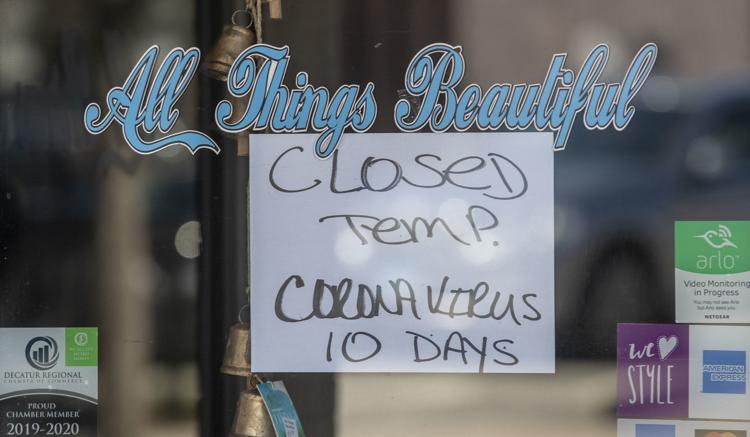 All Things Beautiful
CLOSED
TEMP.
CORONAVIRUS
10 DAYS
arlo™
Video Monitoring
in Progress
You may not see Arlo
but Arlo sees you.
NETGEAR
DECATUR REGIONAL
CHAMBER OF COMMERCE
PROUD
CHAMBER MEMBER
2019-2020
we
STYLE
AMERICAN
EXPRESS